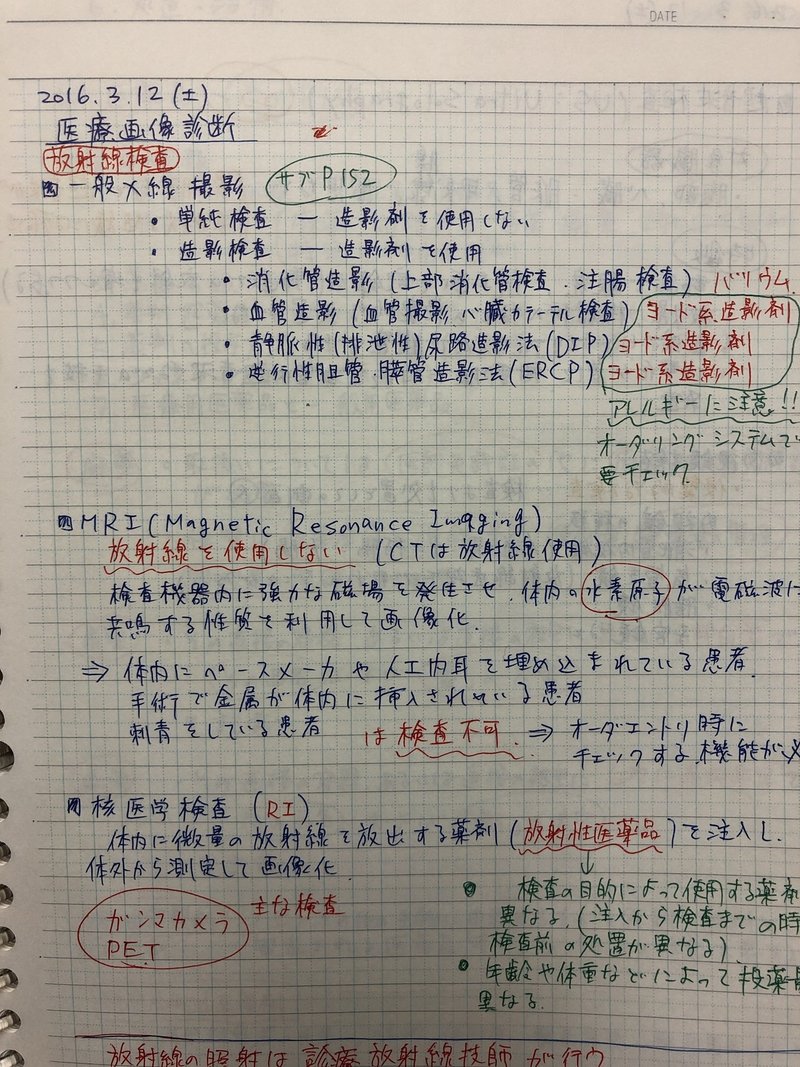 DATE
2016.3.12(土)
医療画像診断
放射線検査
一般X線撮影 サブP152
・単純検査 ― 造影剤を使用しない
・造影検査 ― 造影剤を使用
・消化管造影(上部消化管検査・注腸検査) バリウム
・血管造影(血管撮影 心臓カテーテル検査) ヨード系造影剤
・静脈性(排泄性)尿路造影法(DIP) ヨード系造影剤
・逆行性胆管・膵管造影法(ERCP) ヨード系造影剤
アレルギーに注意!!
オーダリングシステムで
要チェック
MRI(Magnetic Resonance Imaging)
放射線を使用しない (CTは放射線使用)
検査機器内に強力な磁場を発生させ、体内の水素原子が電磁波に
共鳴する性質を利用して画像化.
⇒ 体内にペースメーカや人工内耳を埋め込まれている患者.
手術で金属が体内に挿入されている患者
刺青をしている患者
は検査不可. ⇒ オーダエントリ時に
チェックする機能が
核医学検査 (RI)
体内に微量の放射線を放出する薬剤(放射性医薬品)を注入し.
体外から測定して画像化.
主な検査
ガンマカメラ
PET
検査の目的によって使用する薬剤
異なる.(注入から検査までの時
検査前の処置が異なる)
年齢や体重などによって投薬量
異なる.
放射線の照射は診療放射線技師が行う